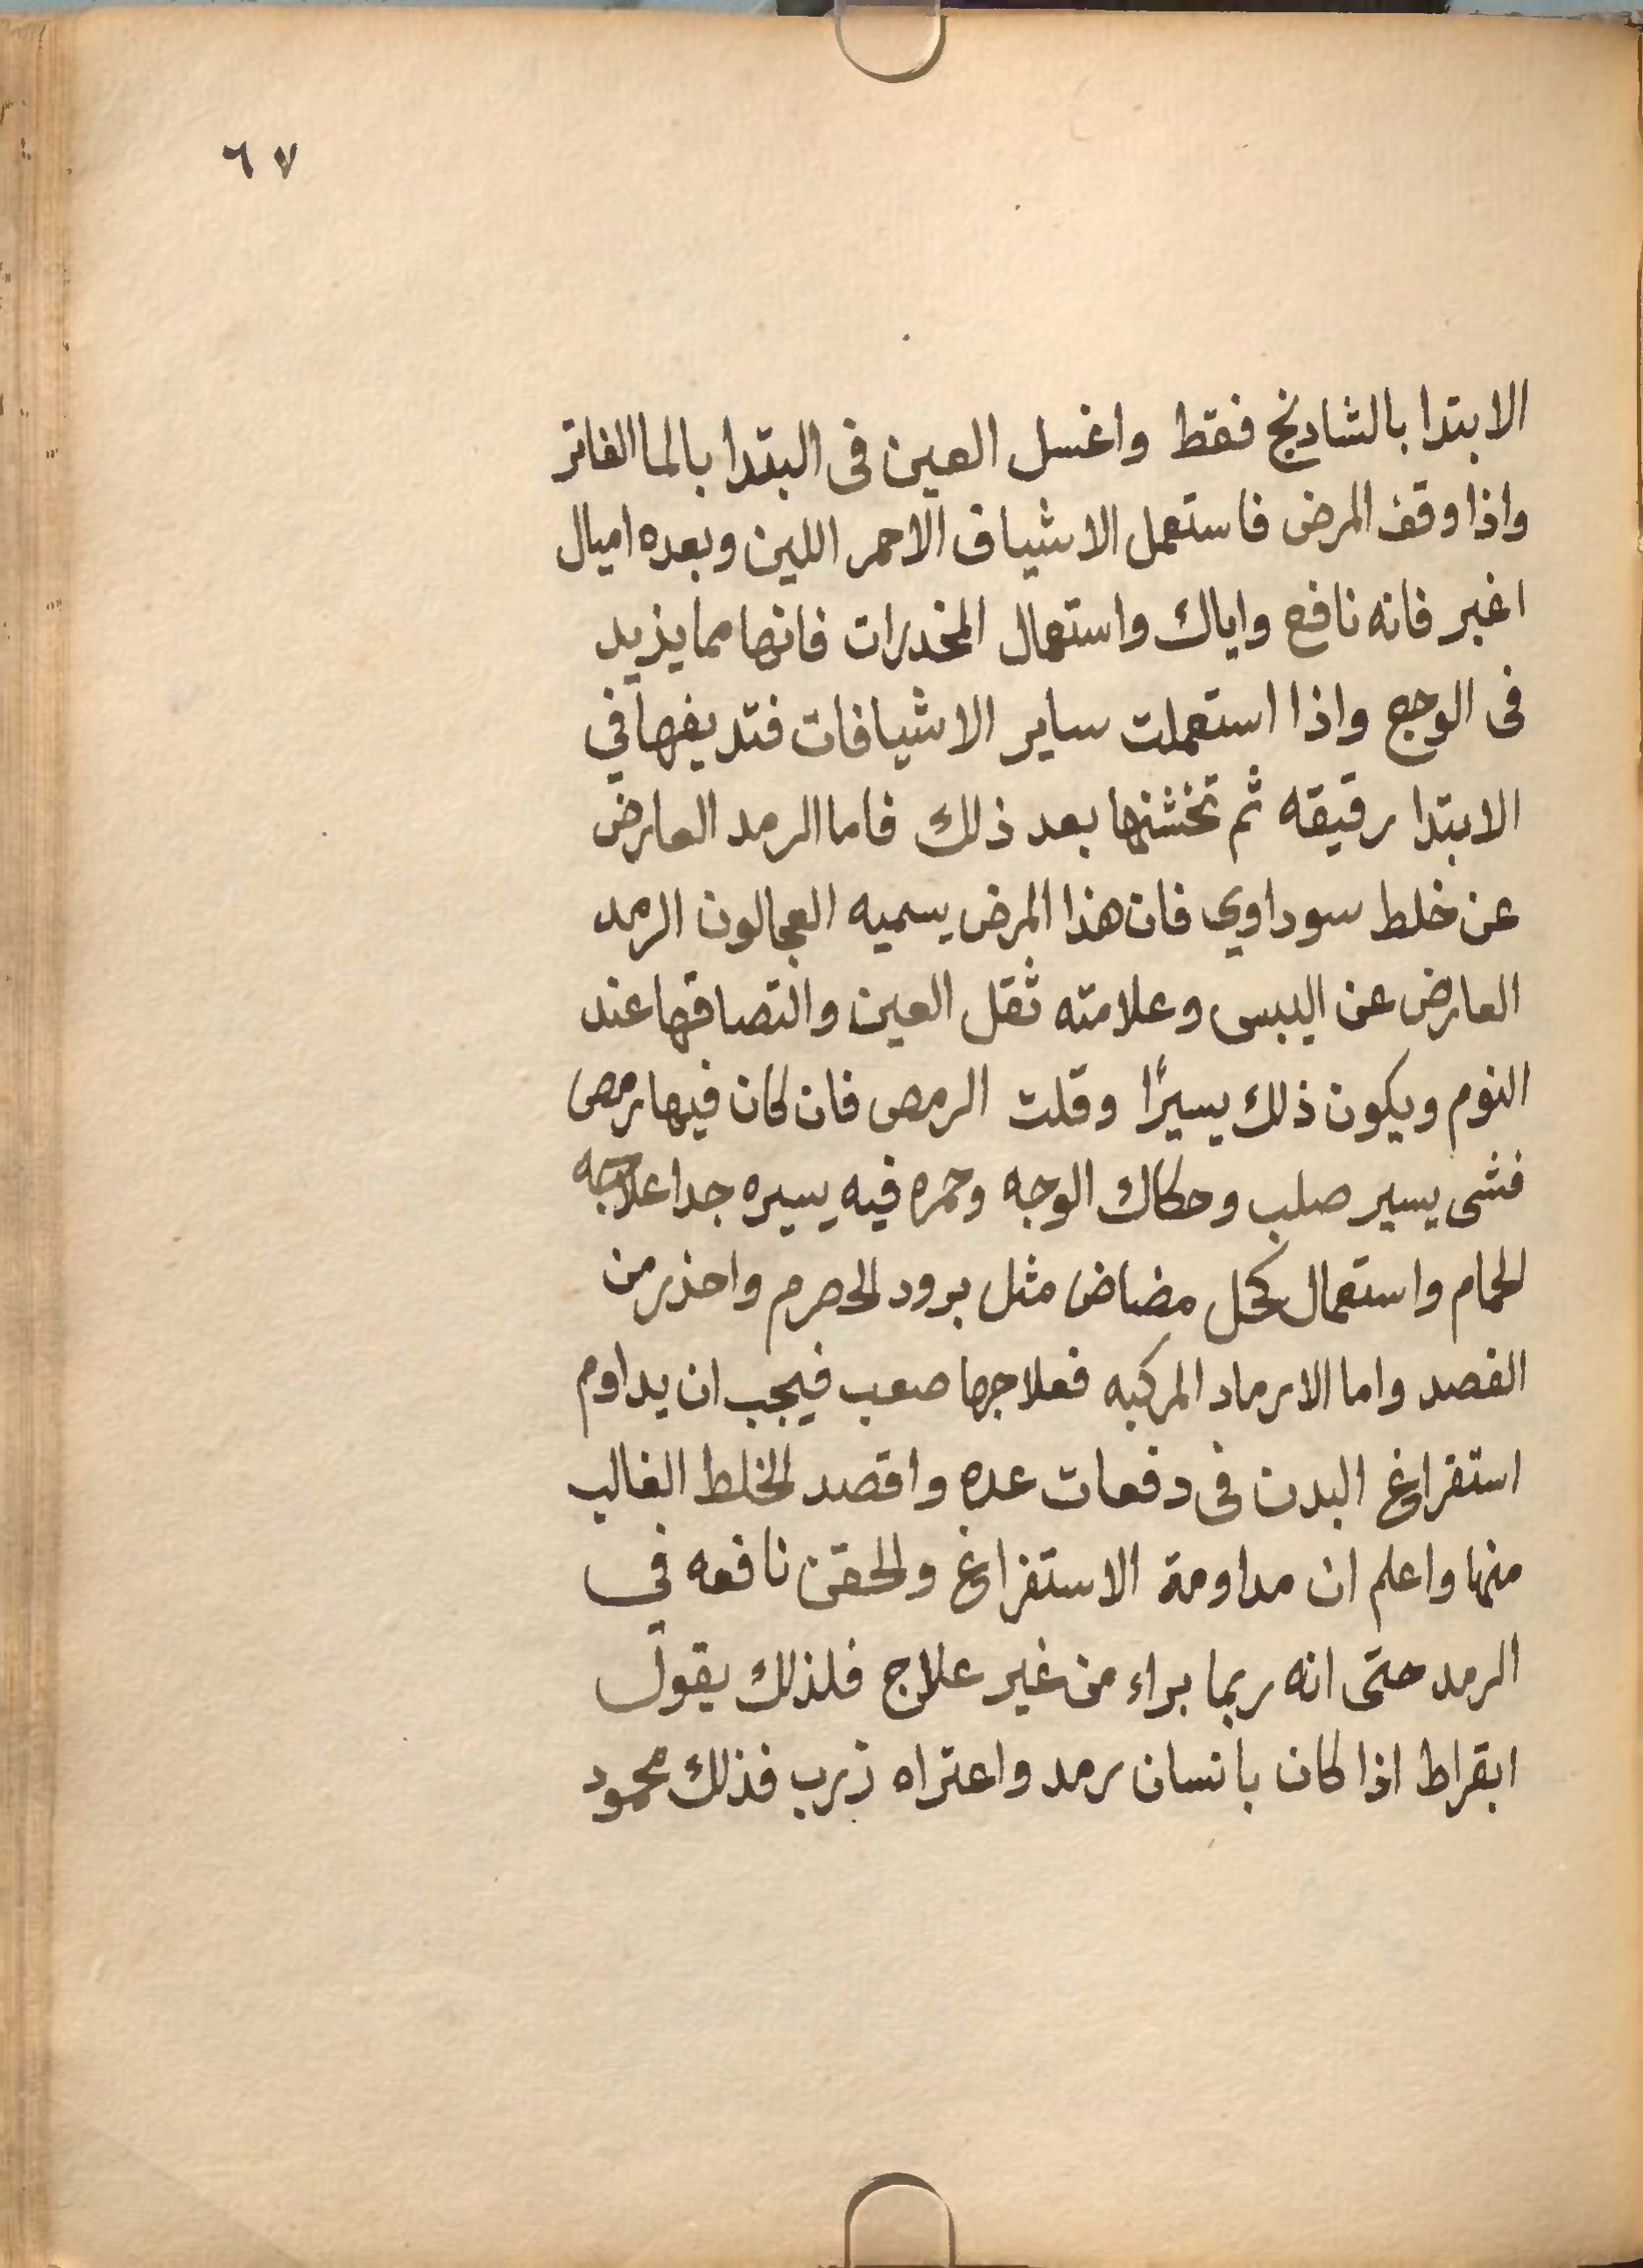 ٦٧
الابتدا بالشادنج فقط واغسل العين فى البتدا بالما الفاتر
واذا وقف المرض فاستعمل الاشياف الاحمر اللين وبعده اميال
اغبر فانه نافع واياك واستعمال المخدرات فانها مما يزيد
فى الوجع واذا استعملت ساير الاشيافات فتديفها في
الابتدا رقيقه ثم تخشنها بعد ذلك فاما الرمد العارض
عن خلط سوداوي فان هذا المرض يسميه العجالون الرمد
العارض عن اليبس وعلامته ثقل العين والتصاقها عند
النوم ويكون ذلك يسيرًا وقلت الرمص فان كان فيها رمص
فشى يسير صلب وحكاك الوجه وحمره فيه يسيره جدا علاجه
الحمام واستعمال كحل مضاض مثل برود الحصرم واحذر من
الفصد واما الارماد المركبه فعلاجها صعب فيجب ان يداوم
استفراغ البدن فى دفعات عده واقصد الخلط الغالب
منها واعلم ان مداومة الاستفراغ والحقن نافعه في
الرمد حتى انه ربما براء من غير علاج فلذلك يقول
ابقراط اذا كان بانسان رمد واعتراه ذرب فذلك محمود